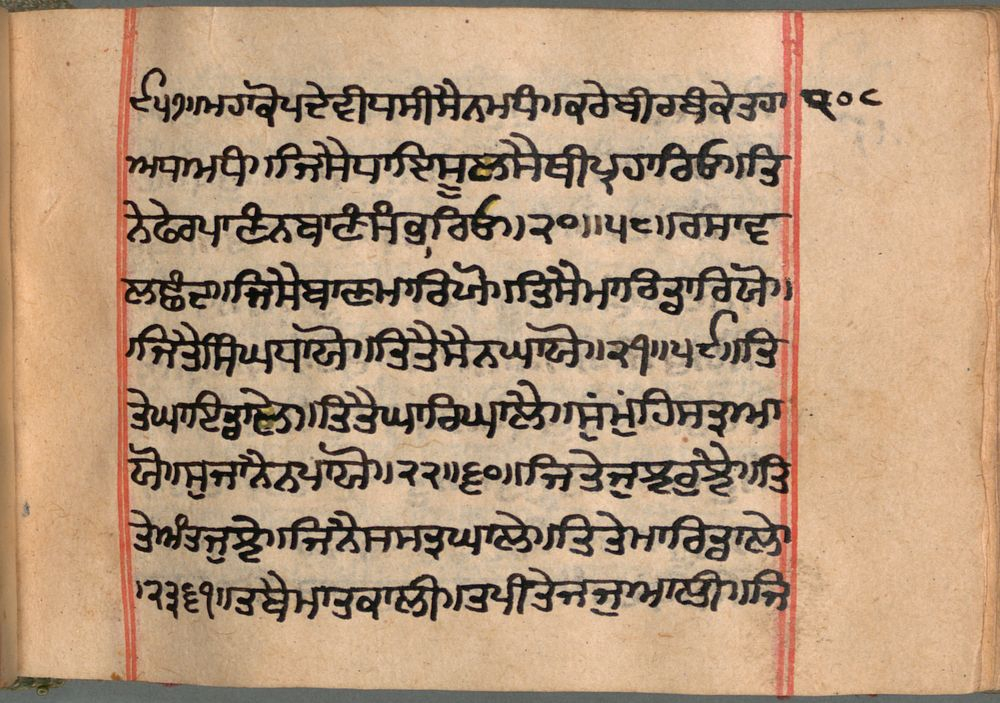 ੯॥੫੭॥ਮਹਾਕੋਪਦੇਵੀਧਸੀਸੈਨਮਧੀ॥ਕਰੇਬੀਰਬੰਕੇਤਹਾ ੨੦੮
ਅਧਾਅਧੀ॥ਜਿਸੈਧਾਇਸੂਲਸੈਥੀਪ੍ਰਹਾਰਿਓ॥ਤਿ
ਨੇਫੇਰਪਾਣੰਨਬਾਣੰਸੰਭ੍ਰਿਓ॥੨੦॥੫੮॥ਰਸਾਵ
ਲਛੰਦ॥ਜਿਸੈਬਾਣਮਾਰਿਯੋ॥ਤਿਸੈਮਾਰਿਡਾਰਿਯੋ॥
ਜਿਤੈਸਿੰਘਧਾਯੋ॥ਤਿਤੈਸੈਨਘਾਯੋ॥੨੧॥੫੯॥ਤਿ
ਤੇਘਾਇਡਾਲੇ॥ਤਿਤੈਘਾਰਿਘਾਲੈ॥ਸੁੰਮੁੰਹਿਸਤ੍ਰਆ
ਯੋ॥ਸੁਜਾਨੈਨਪਾਯੋ॥੨੨॥੬੦॥ਜਿਤੇਜੁਝਰੁਝੈ॥ਤਿ
ਤੇਅੰਤਜੁਝੇ॥ਜਿੰਨੈਸਸਤ੍ਰਘਾਲੇ॥ਤਿਤੇਮਾਰਿਡਾਲੇ
॥੨੩੬੧॥ਤਬੈਮਾਤਕਾਲੀ॥ਤਪੀਤੇਜਜੁਆਲੀ॥ਜਿ